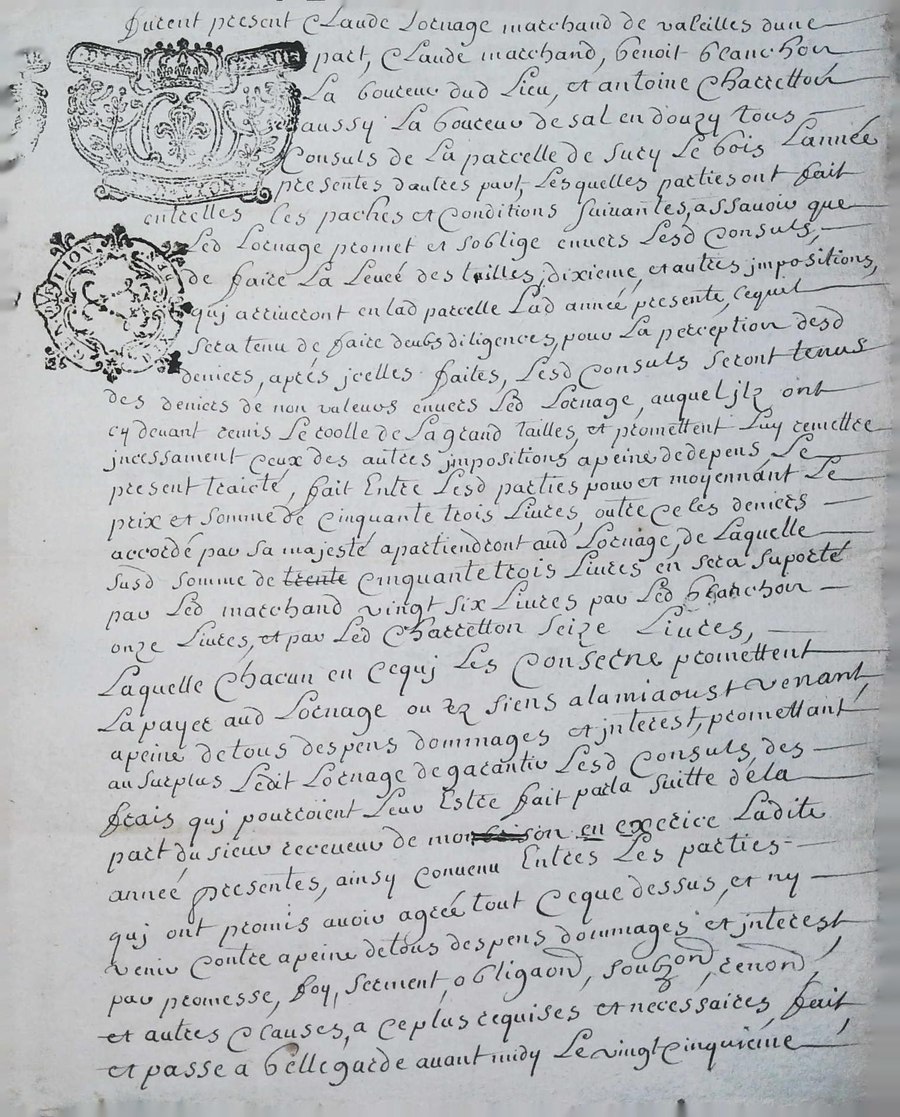 furent present Claude Lornage marchand de valeilles dune
part, Claude marchand, benoit blanchon
La boureur dud Lieu, et antoine Charretton
aussy La boureur de sal en donzy tous
Consuls de La parcelle de sury Le bois Lannée
presentes dautres part, Lesquelles parties ont fait
entrelles les paches et Conditions suivantes, assavoir que
Led Lornage promet et soblige envers Lesd Consuls,
de faire La Leveé des tailles, dixieme, et autres jmpositions,
quj arriveront en lad parcelle Lad anneé presente, cequil
sera tenu de faire deubs diligences, pour La perception desd
deniers, aprés jcelles faites, Lesd Consuls seront tenus
des deniers de non valeurs envers Led Lornage, auquel jlz ont
cy devant remis Le roolle de La grand tailles, et promettent Luy remettre
jncessament ceux des autres jmpositions apeine dedepens, Le
present traicté, fait Entre Lesd parties pour et moyennant Le
prix et somme de Cinquante trois Livres, outre Ce les deniers
accordé par sa majesté apartiendront aud Lornage, de Laquelle
susd somme de trente Cinquante trois Livres en sera suporté
par Led marchand vingt six Livres par Led blanchon
onze Livres, et par Led Charretton seize Livres,
Laquelle Chacun en Cequj Les Conserne promettent
La payer aud Lornage ou siens alamiaoust venant,
apeine detous despens dommages et jnterest, promettant
au surplus Ledit Lornage degarantir Lesd Consuls, des
frais quj pourroient Leur Estre fait parla suitte déla
part du sieur receveur de mon son en exerice Ladite
anneé presentes, ainsy Convenu Entres Les parties
quj ont promis avoir agreé tout Ceque dessus, et ny
venir Contre apeine detous despens dommages et jnterest
par promesse, foy, serment, obligaond, soubzond, renond
et autres Clauses, a Ceplus requises et necessaires, fait
et passe a bellegarde avant midy Le vingt Cinquieme